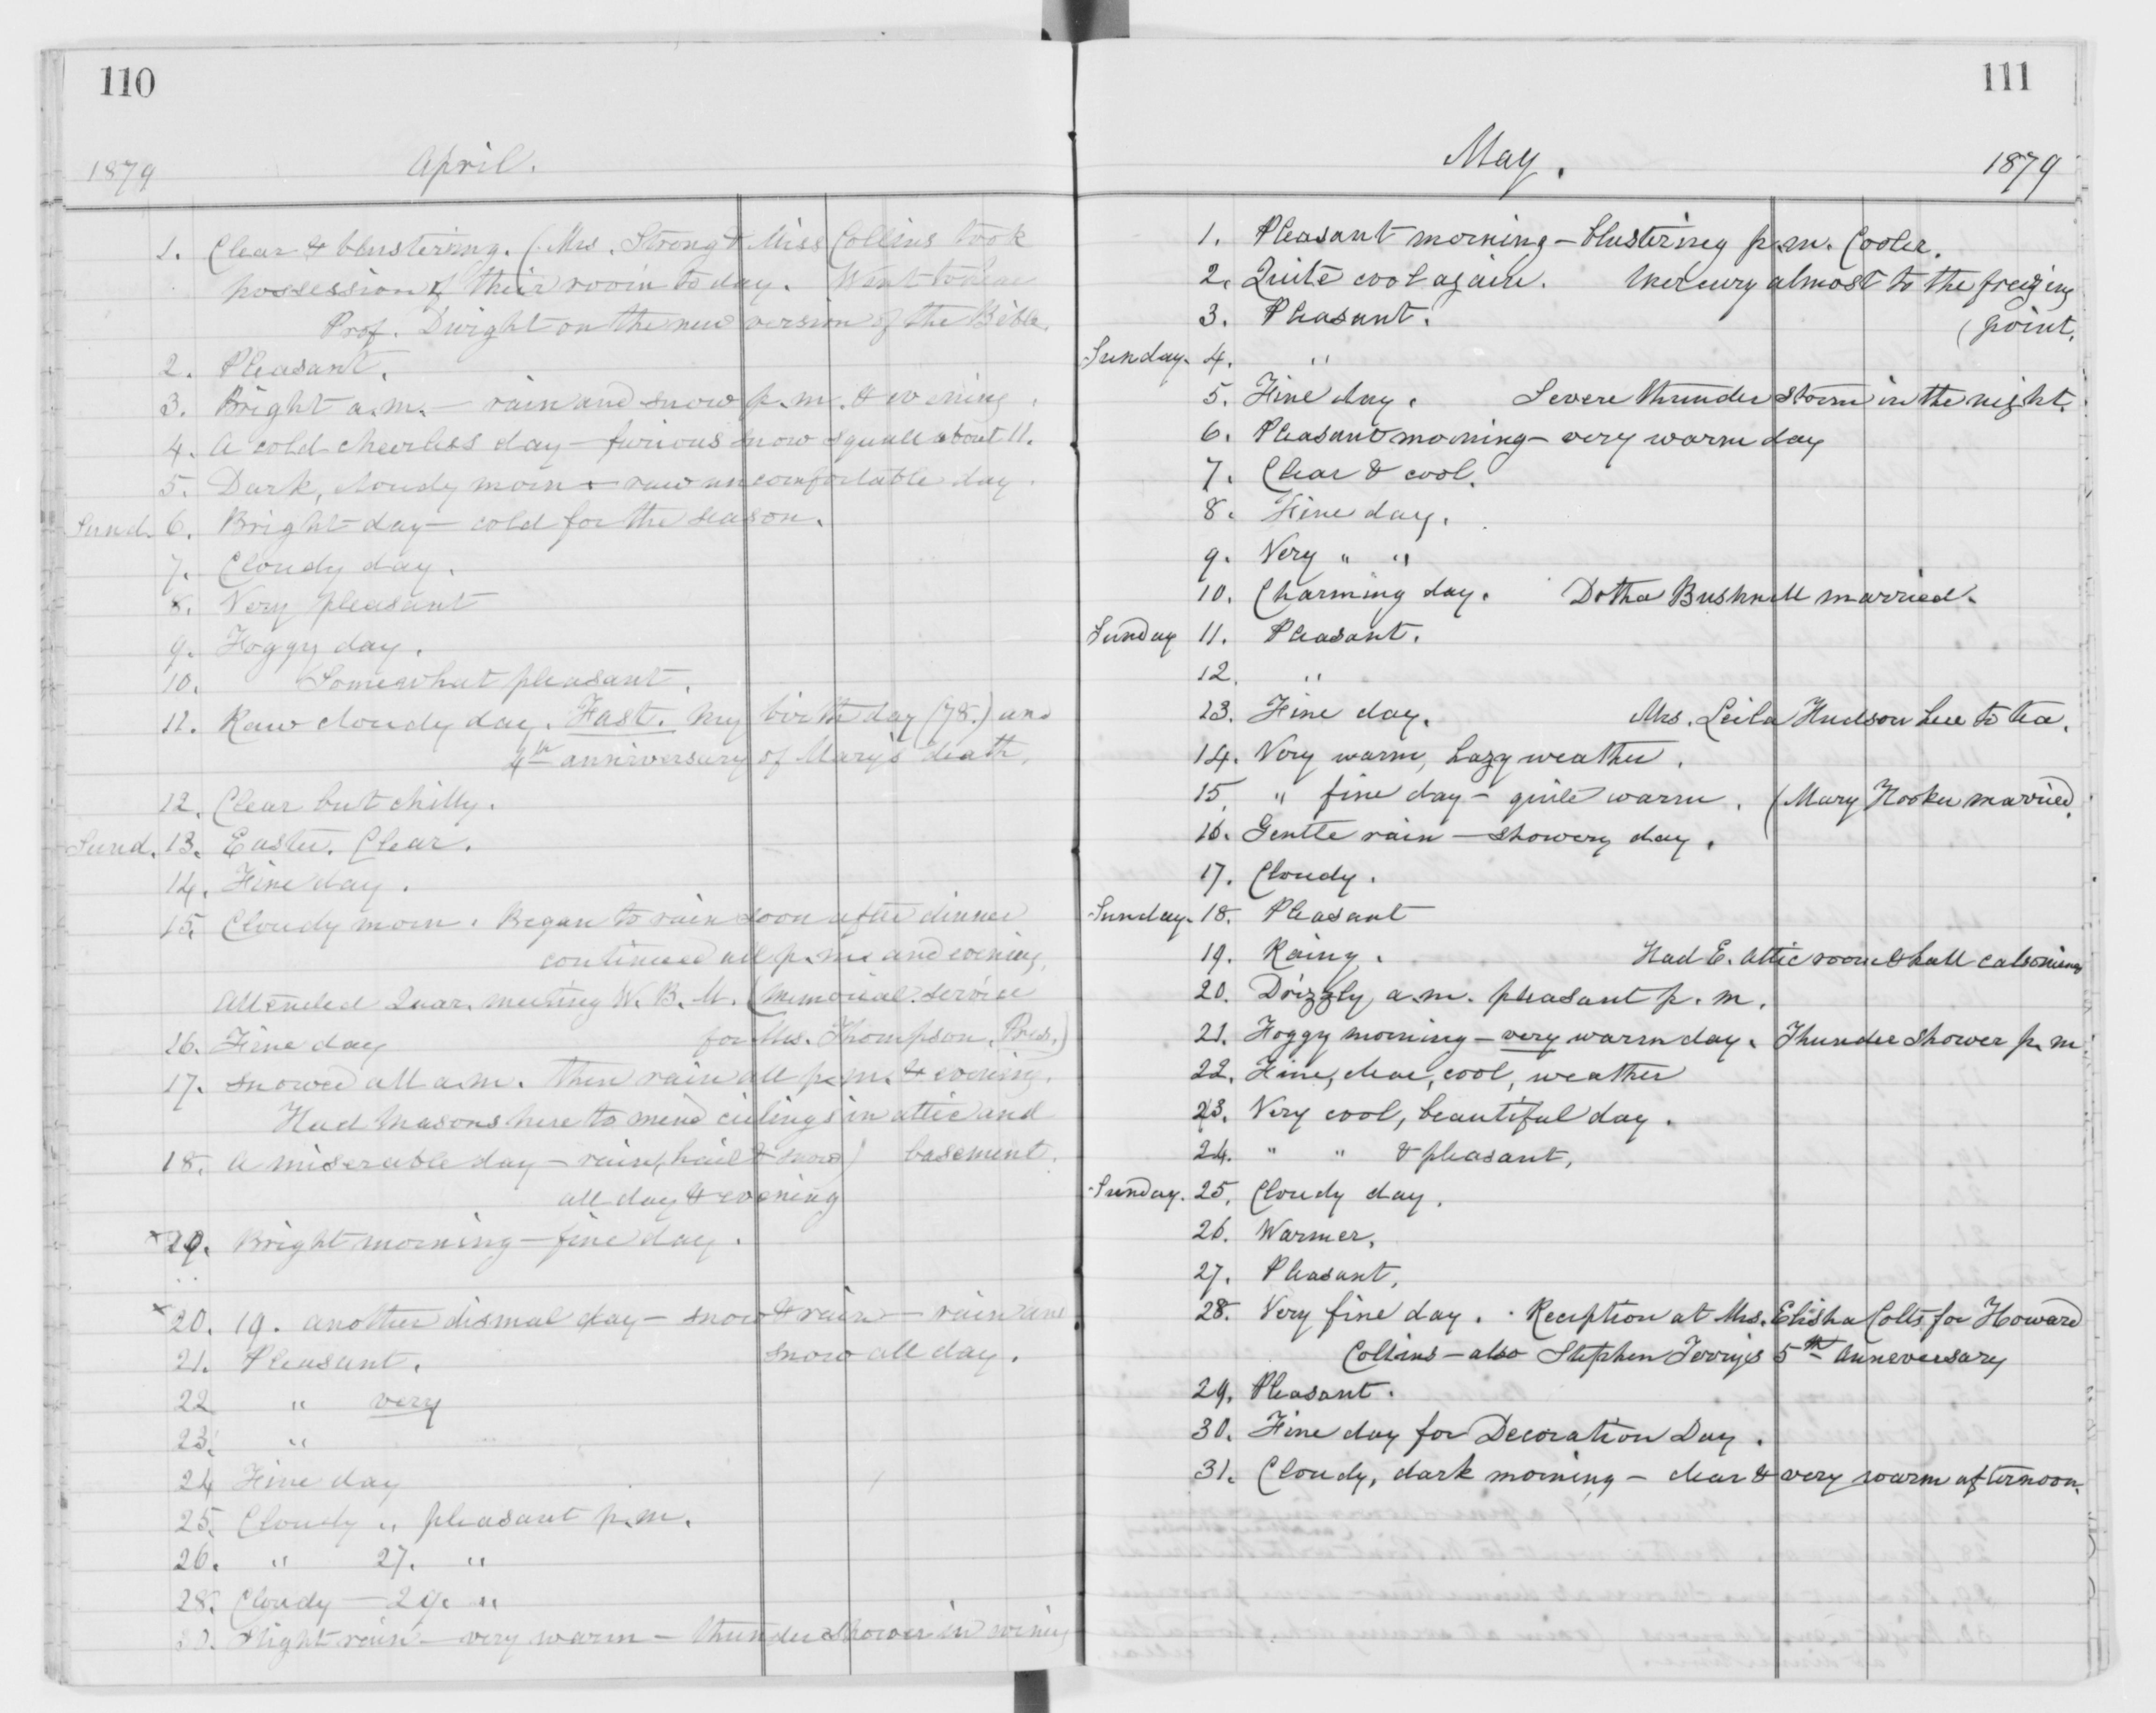 110
1879 April.
1. Clear & blustering. (Mrs. Strong & Miss Collins took
possession of their room to day. Went to hear
Prof. Dwight on the new version of the Bible.
2. Pleasant.
3. Bright a.m. — rain and snow p.m. & evening.
4. A cold cheerless day — furious snow squall about 11.
5. Dark, cloudy morn & raw uncomfortable day.
Sund. 6. Bright day — cold for the season.
7. Cloudy day.
8. Very pleasant
9. Foggy day.
10. Somewhat pleasant.
11. Raw cloudy day. Fast. My birth day (78.) and
4th anniversary of Mary's death.
12. Clear but chilly.
Sund. 13. Easter. Clear.
14. Fine day.
15. Cloudy morn. Began to rain soon after dinner
continued all p.m. and evening.
Attended Quar. meeting W. B. M. (Memorial service
16. Fine day for Mrs. Thompson, Pres.)
17. Snowed all a.m. then rain all p.m. & evening.
Had masons here to mend ceilings in attic and
18. A miserable day — rain, hail & snow) basement.
all day & evening
x 29. Bright morning — fine day.
x 20. 19. another dismal day — snow & rain — rain and
21. Pleasant. snow all day.
22 " very
23. "
24 Fine day
25. Cloudy " pleasant p.m.
26. " 27. "
28. Cloudy — 29. "
30. Slight rain — very warm — thunder shower in evening
111
May. 1879
1. Pleasant morning — blustering p.m. Cooler.
2. Quite cool again. Mercury almost to the freezing
3. Pleasant. (point.
Sunday. 4. "
5. Fine day. Severe thunder storm in the night.
6. Pleasant morning — very warm day
7. Clear & cool.
8. Fine day.
9. Very " "
10. Charming day. Dotha Bushnell married.
Sunday 11. Pleasant.
12. "
13. Fine day. Mrs. Leila Hudson here to tea.
14. Very warm, hazy weather.
15. " fine day — quite warm. (Mary Hooker married.
16. Gentle rain — showery day.
17. Cloudy.
Sunday. 18. Pleasant
19. Rainy. Had E. attic room & hall calsomined
20. Drizzly, a.m. pleasant p.m.
21. Foggy morning — very warm day. Thunder shower p.m.
22. Fine, clear, cool, weather
23. Very cool, beautiful day.
24. " " & pleasant,
Sunday. 25. Cloudy day.
26. Warmer.
27. Pleasant.
28. Very fine day. Reception at Mrs. Elisha Colts for Howard
Collins — also Stephen Terry's 5th anneversary
29. Pleasant.
30. Fine day for Decoration Day.
31. Cloudy, dark morning — clear & very warm afternoon.